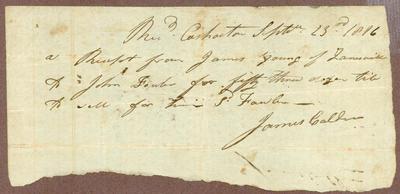 Recd. Coshocton Septr. 23rd 1816
a Receipt from James Young of Zanesville
to John Fowler for fifty three
to sell for him Sd. Fowler
James Calder